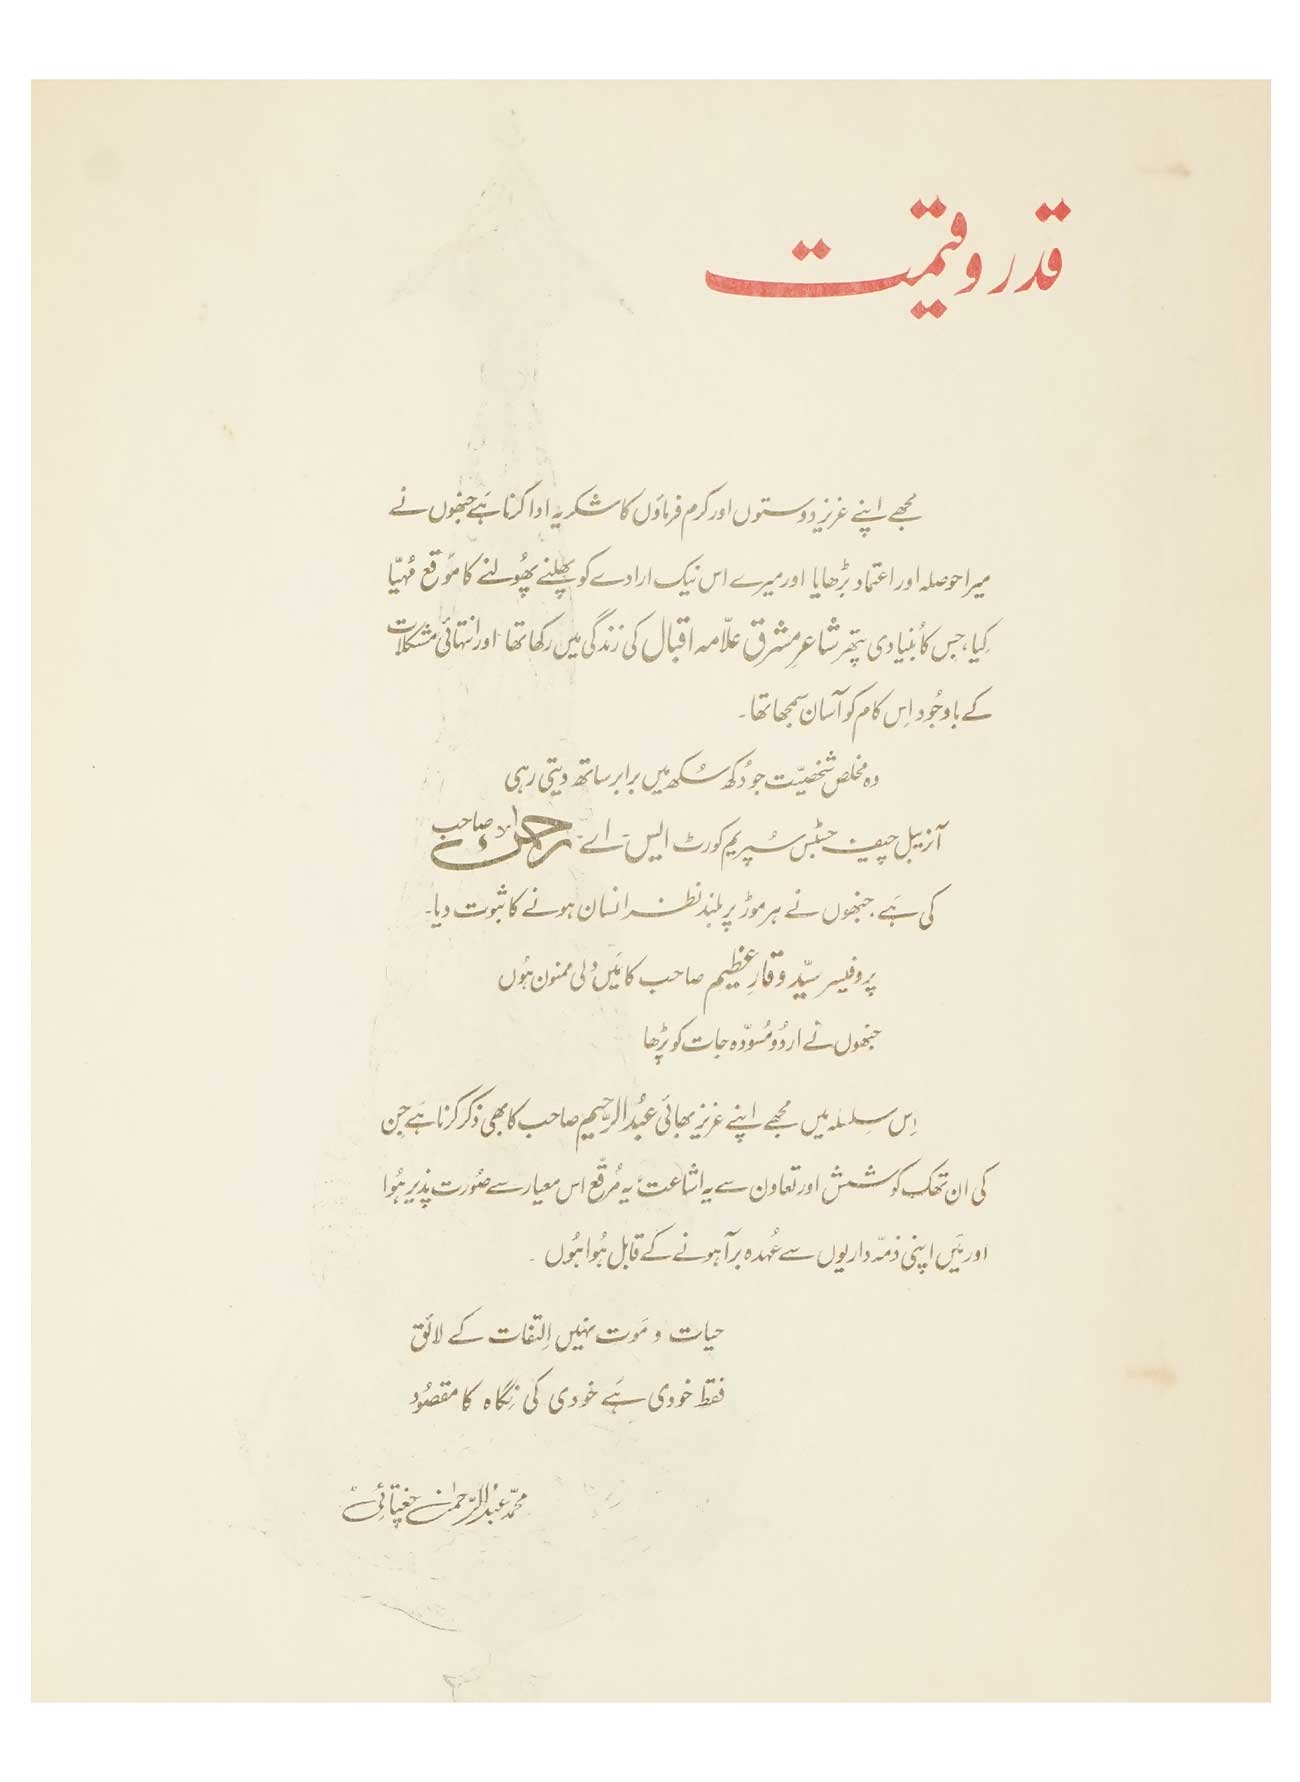 قدر و قیمت
مجھے اپنے عزیز دوستوں اور کرم فرماؤں کا شکریہ ادا کرنا ہَے جنھوں نے
میرا حوصلہ اور اعتماد بڑھایا اور میرے اس نیک ارادے کو پھلنے پھُولنے کا موَقع مُہیّا
کِیا، جِس کا بُنیادی پتھر شاعرِ مشرق علاّمہ اقبال کی زندگی میں رکھا تھا اور انتہائی مشکلات
کے باوجُود اِس کام کو آسان سمجھا تھا۔
وہ مخلص شخصیّت جو دُکھ سُکھ میں برابر ساتھ دیتی رہی
آنریبل چیف جسٹس سُپریم کورٹ ایس۔ اے۔ رحمٰن صاحب
کی ہَے۔ جنھوں نے ہر موڑ پر بلند نظر انسان ہونے کا ثبوت دیا۔
پروفیسر سیّد وقار عظیم صاحب کا مَیں دلی ممنون ہُوں
جنھوں نے اردُو مُسوّدہ جات کو پڑھا
اِس سِلسلہ میں مجھے اپنے عزیز بھائی عبدُالرّحیم صاحب کا بھی ذکر کرنا ہَے جِن
کی ان تھک کوشش اور تعاون سے یہ اشاعت، یہ مُرقّع اس معیار سے صُورت پذیر ہُوا
اور مَیں اپنی ذمّہ داریوں سے عُہدہ برآ ہونے کے قابل ہُوا ہُوں۔
حیات و مَوت نہیں اِلتفات کے لائق
فقط خودی ہَے خودی کی نِگاہ کا مقصُود
محمّد عبدُالرّحمٰن چغتائی